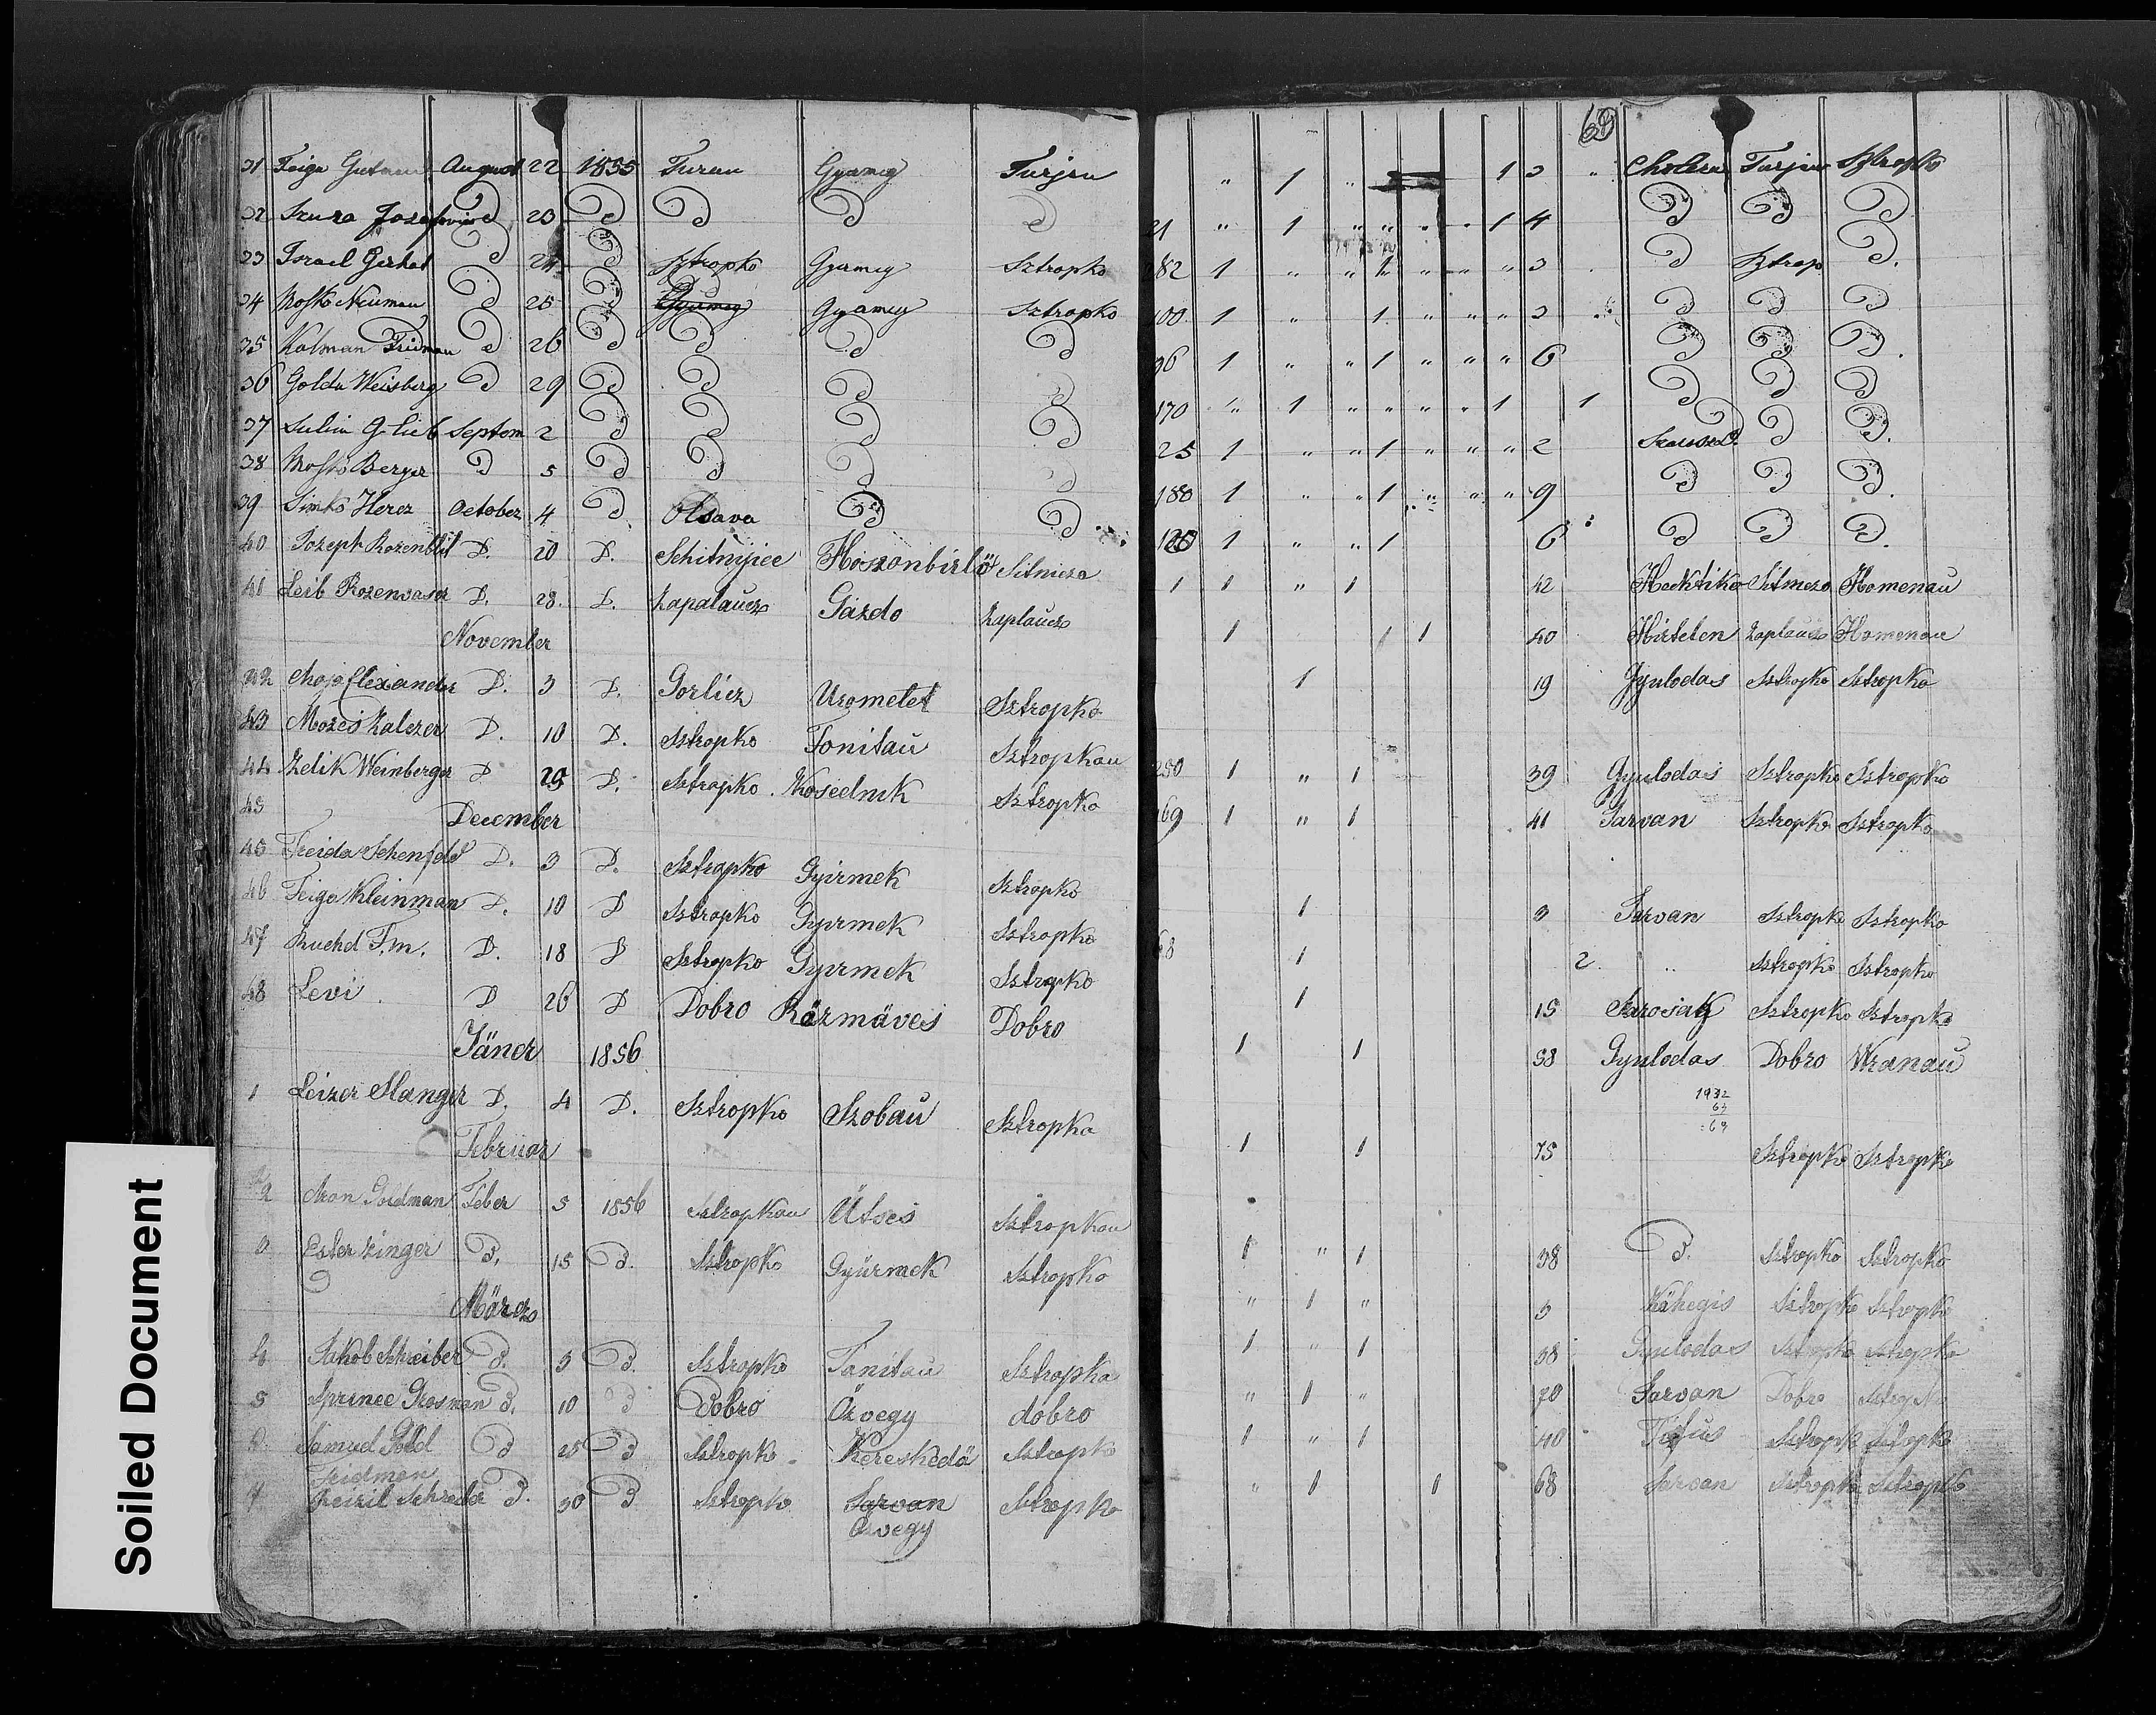 69
31 Feiga Gutman August 22 1855 Turan Gyarmeg Turjan " 1 " 1 3 " Cholera Turjan Sztropko
32 Szura Josefovics D 23 D D D D 21 " 1 " " " " 1 4 D D D
33 Israel Gerhat D 24 D Sztropko Gyermeg Sztropko 82 1 " " 1 " " " 3 D Sztrop D.
34 Mosko Neuman D 25 D Gyarmeg Gyameg Sztropko 100 1 " 1 " " " 3 D D D
35 Kalman Fridman D 26 D D D D 96 1 " " 1 " " " 6 D D D.
36 Golda Weisberg D 29 D D D D 170 " 1 " " " " 1 1 D D D
37 Sulim Glieb Septem 2 D D D D 25 1 " " 1 " " " 2 D D.
38 Mosko Berger D 5 D D D D 180 1 " " 1 " " " 9 D D D.
39 Simko Herez October 4 D Olsava D D 1 " " 1 6 D D D.
40 Jozeph Rozenblit D. 20 D. Schitnyice Hoszonbirlö Sitnicza 1 1 " 1 42 Hecktika Sitnicza Homenau
41 Leib Rozenvaser D. 28. D. Zapalaucz Gazdo Zaplaucz 1 1 1 40 Hirtelen Zaplaucz Homenau
November
42 Chaja Elexander D. 3 D. Gorlicz Urometet Sztropko 1 19 Gyulodas Sztropko Sztropko
43 Mozes Zalczer D. 10 D. Sztropko Tonitau Sztropkau 250 1 " 1 39 Gyulodas Sztropko Sztropko
44 Zelik Weinberger D 29 D. Sztropko Koscelnik Sztropko 69 1 " 1 41 Sarvan Sztropko Sztropko
45 December
45 Freida Schenfeld D. 3 D. Sztropko Gyirmek Sztropko 1 3 Sarvan Sztropko Sztropko
46 Feiga Kleinman D. 10 D Sztropko Gyirmek Sztropko 68 1 2 " Sztropko Sztropko
47 Ruchel F.m. D. 18 D Sztropko Gyirmek Sztropko 1 15 Sztropko Sztropko
48 Levi D 26 D Dobro Räzmäves Dobro 1 1 58 Gyulodas Dobro Wranau
Jäner 1856
1932
63
69
1 Leizer Slanger D. 4 D. Sztropko Szobau Sztropko 1 1 75 Sztropko Sztropko
Februar
2 Aron Goldman Feber 5 1856 Sztropkau Ütses Sztropkau 1 " 1 38 D. Sztropko Sztropko
3 Ester Zinger D. 15 D. Sztropko Gyürmek Sztropko " 1 " 3 Kähegis Sztropko Sztropko
Märcz
4 Jakob Schreiber D. 5 D. Sztropko Tanitau Sztropko 1 " 1 38 Gyulodas Sztropko Sztropko
5 Sprince Grosman D. 10 D Dobro Özvegy dobro " 1 " 70 Sarvan Dobro Sztropko
6 Samuel Gold D 25 D Sztropko Kereskedä Sztropko 1 " 1 40 Tifus Sztropk Sztropko
Fridman
7 Freizil Schreiber D. 30 D Sztropko Sarvan Sztropko " 1 1 68 Sarvan Sztropko Sztropko
Özvegy
Soiled Document